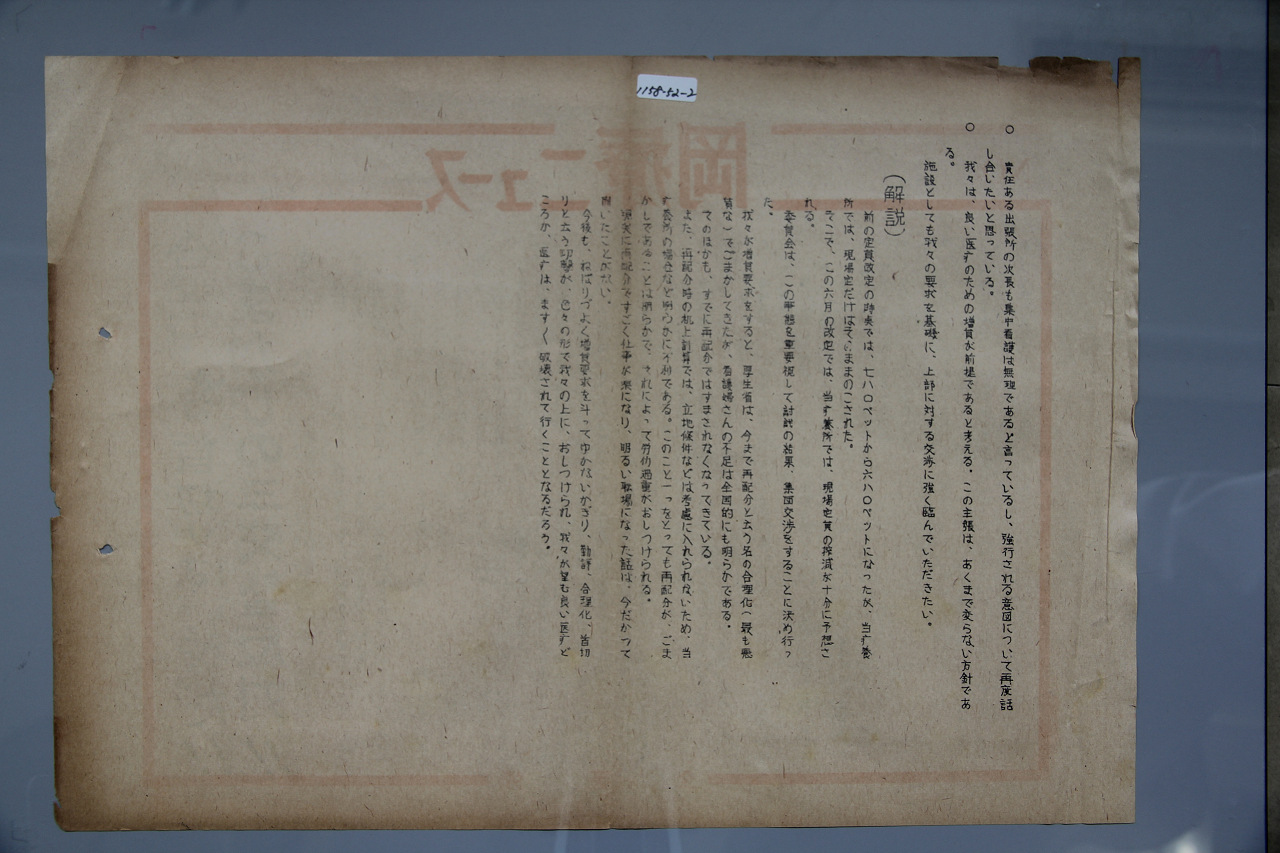 1158-52-2
○　責任ある出張所の次長も集中看護は無理であると言っているし、強行される意図について再度話
し合いたいと思っている。
○　我々は、良い医疗のための増員が前提であると考える。この主張は、あくまで変らない方針であ
る。
施設としても我々の要求を基礎に、上部に対する交渉に強く臨んでいただきたい。
（解説）
前の定員改定の時点では、七八〇ベットから六八〇ベットになったが、当疗養
所では、現場定だけはそのままのこされた。
そこで、この六月の改定では、当疗養所では、現場定員の搾減が十分に予想さ
れる。
委員会は、この事態を重要視して討議の結果、集団交渉をすることに決め行っ
た。
我々が増員要求をすると、厚生省は、今まで再配分と云う名の合理化（最も悪
質な）でごまかしてきたが、看護婦さんの不足は全国的にも明らかである。
そのほかも、すでに再配分ではすまされなくなってきている。
また、再配分時の机上計算では、立地條件などは考慮に入れられないため、当
疗養所の場合など明らかに不利である。このこと一つをとっても再配分が、ごま
かしであることは明らかで、それによって労仂過重がおしつけられる。
現実に再配分ですごく仕事が楽になり、明るい職場になった話は、今だかつて
聞いたことがない。
今後も、ねばりづよく増員要求を斗ってゆかないかぎり、勤評、合理化、首切
りと云う攻撃が、色々の形で我々の上に、おしつけられ、我々が望む良い医疗ど
ころか、医疗は、ますく破壊されて行くこととなるだろう。
岡療ニュース